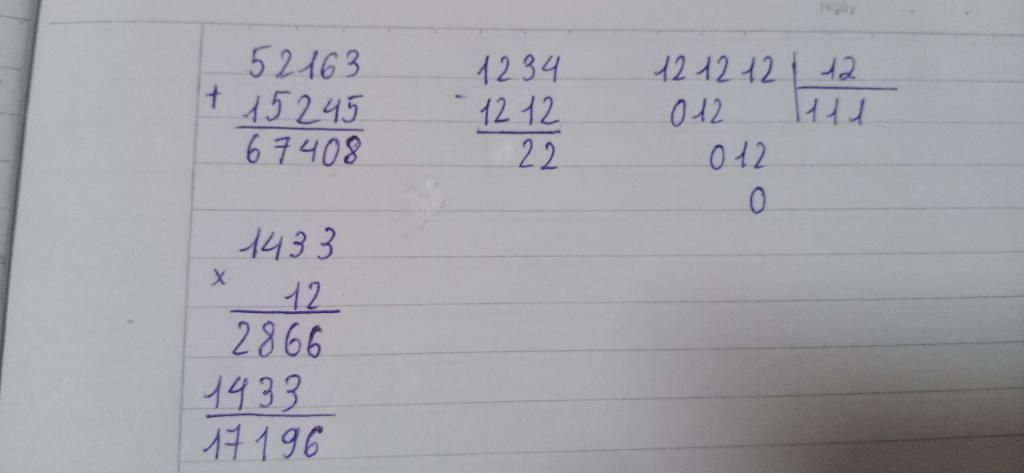 Ngày
52163
+
15245
67408
1234
-
1212
22
121212 12
012 111
012
0
1433
x
12
2866
1433
17196